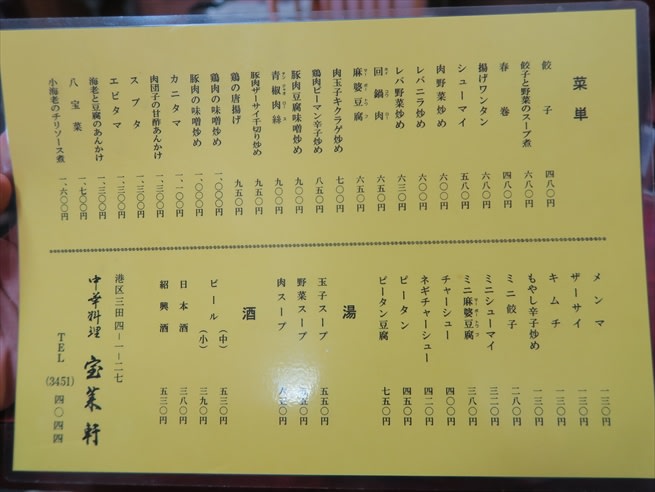 菜単
餃子 四八〇円
餃子と野菜のスープ煮 六八〇円
春巻 四八〇円
揚げワンタン 六八〇円
シューマイ 五八〇円
肉野菜炒め 六〇〇円
レバニラ炒め 六〇〇円
レバ野菜炒め 六三〇円
回鍋肉 六五〇円
麻婆豆腐 六五〇円
肉玉子キクラゲ炒め 七〇〇円
鶏肉ピーマン辛子炒め 八五〇円
豚肉豆腐味噌炒め 九〇〇円
青椒肉絲 九〇〇円
豚肉ザーサイ千切り炒め 九五〇円
鶏の唐揚げ 九五〇円
鶏肉の味噌炒め 一、〇〇〇円
豚肉の味噌炒め 一、〇〇〇円
カニタマ 一、一〇〇円
肉団子の甘酢あんかけ 一、三〇〇円
スブタ 一、三〇〇円
エビタマ 一、三〇〇円
海老と豆腐のあんかけ 一、三〇〇円
八宝菜 一、七〇〇円
小海老のチリソース煮 一、六〇〇円
メンマ 一三〇円
ザーサイ 一三〇円
キムチ 一三〇円
もやし辛子炒め 一三〇円
ミニ餃子 二八〇円
ミニシューマイ 三二〇円
ミニ麻婆豆腐 三八〇円
チャーシュー 四〇〇円
ネギチャーシュー 四二〇円
ピータン 四五〇円
ピータン豆腐 七五〇円
湯
玉子スープ 五五〇円
野菜スープ
肉スープ
酒
ビール (中) 五三〇円
(小) 三九〇円
日本酒 三八〇円
紹興酒 五三〇円
港区三田四-一-二七
中華料理 宝菜軒
TEL (3451) 四〇四四